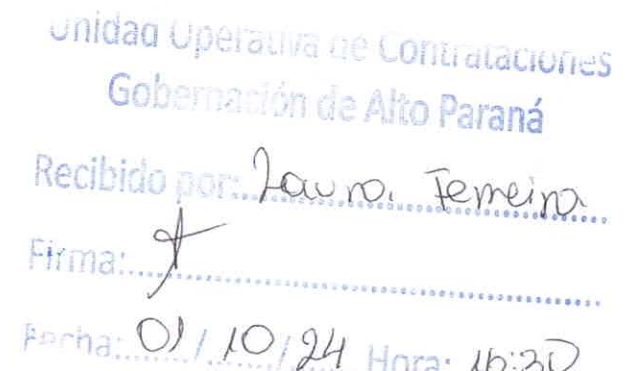 Unidad Operativa de Contrataciones
Gobernación de Alto Paraná
Recibido por: Laura Ferreira
Firma:
Fecha: 01/10/24 Hora: 16:30